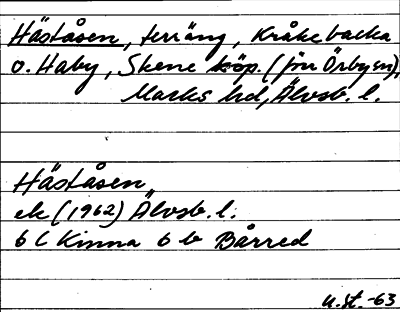 Håståsen, terräng, Kråkebacka
o. Haby, Skene köp. (förr Örby sn),
Marks hd, Älvsb. l.
Håståsen
ek (1962) Älvsb. l.
6 C Kinna 6 b Bårred
u.st. -63